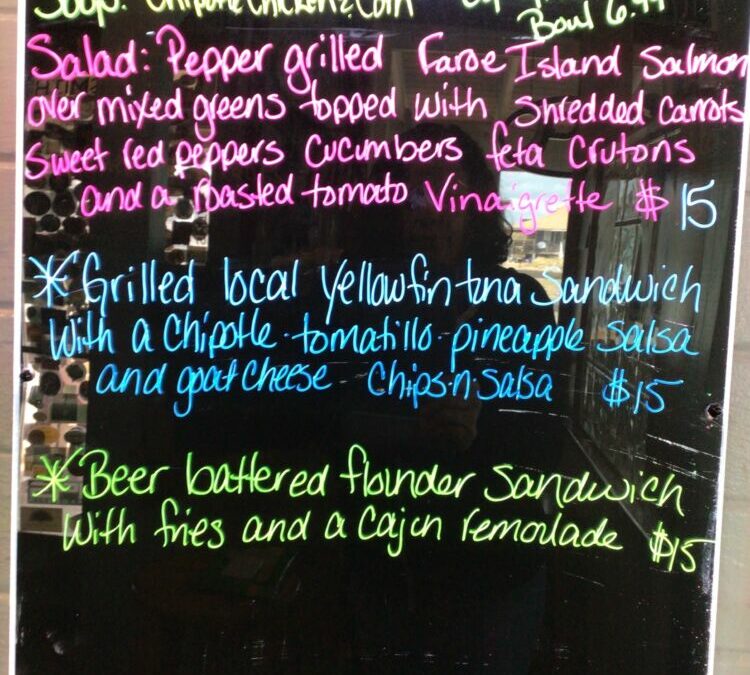 Soup: Chipotle Chicken & Corn
Bowl 6.99
Salad: Pepper grilled Faroe Island Salmon
over mixed greens topped with Shredded Carrots
Sweet red peppers Cucumbers feta Crutons
and a roasted tomato Vinaigrette $15
*Grilled local yellowfin tuna Sandwich
With a Chipotle·tomatillo·pineapple Salsa
and goat Cheese Chips·n·Salsa $15
*Beer battered flounder Sandwich
With fries and a Cajun remoulade $15